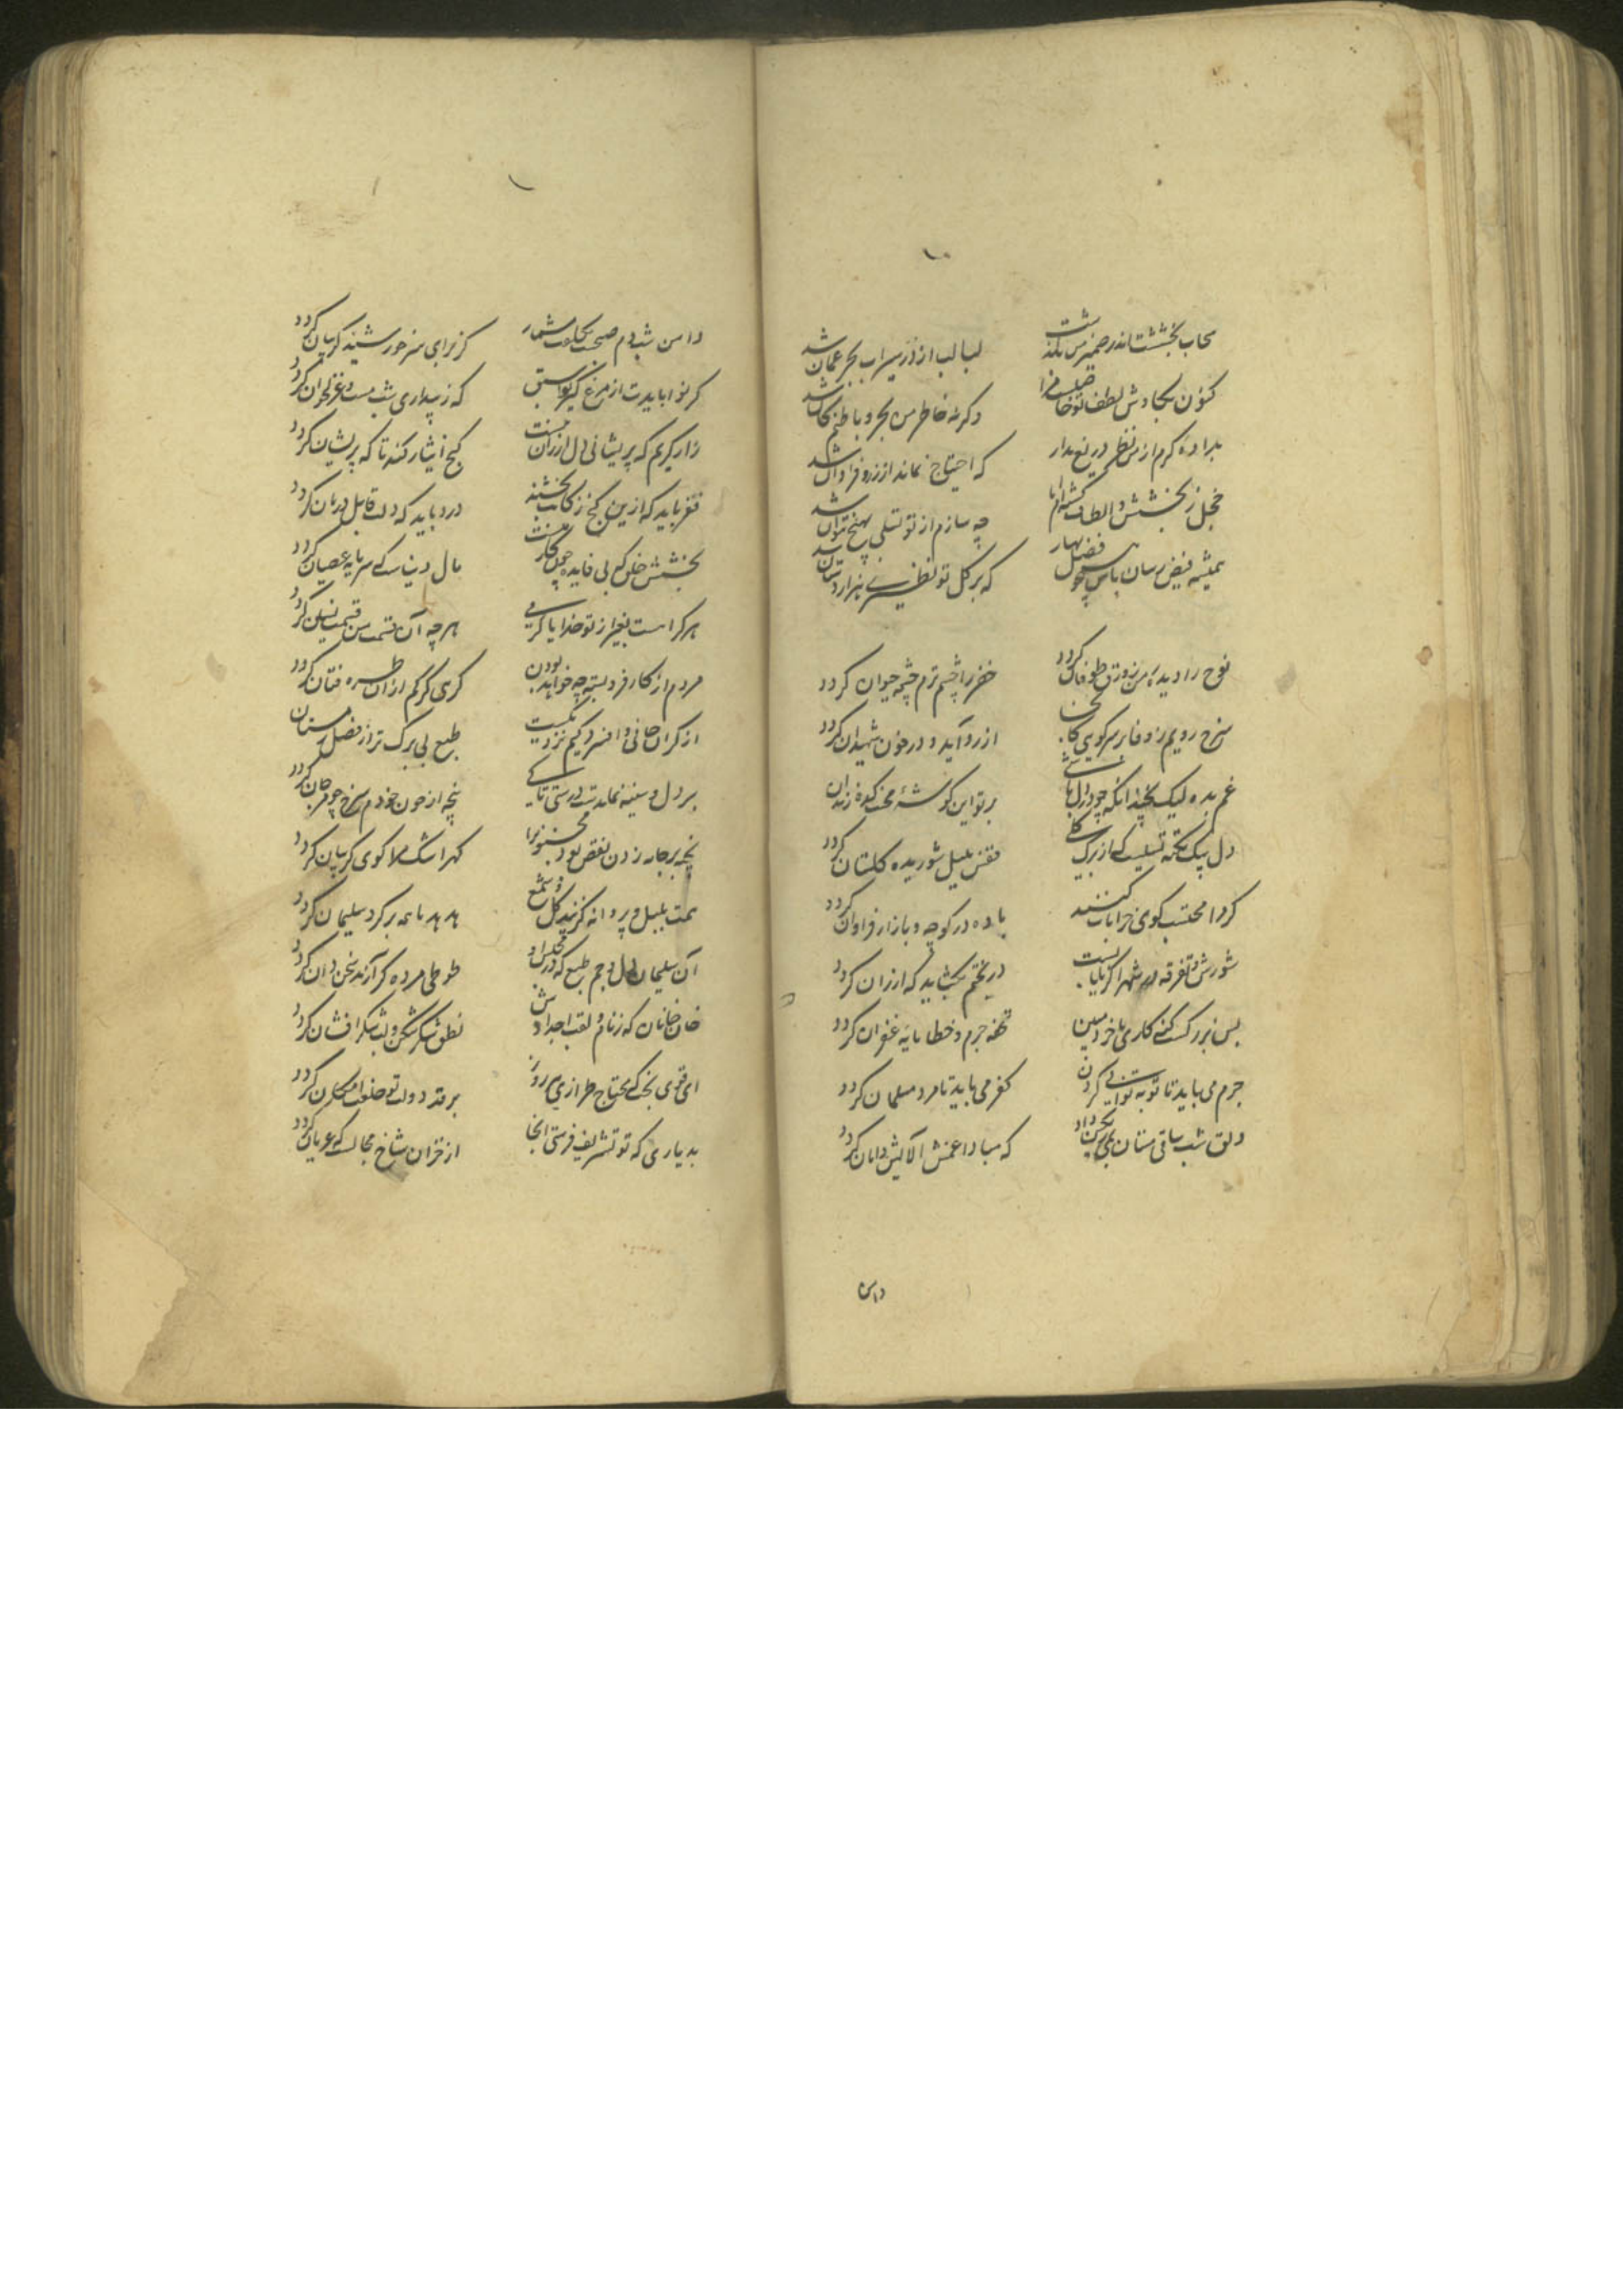 سحاب بخششت اندر ضمیر من نگذشت لبالب از در سیراب بحر عمان شد
کنون بکاوش لطف تو وگرنه خاطر من بحر و باطنم کان شد
بداده کرم از من نظر دریغ مدار که احتیاج نماند از زر فراوان شد
خجل ز بخشش و الطاف چه سازم از تو تسلی بهیچ نتوان شد
همیشه فیض رسان باش چو فصل بهار که بر گل تو نظیری هزار دستان شد
نوح را دیده من زورق طوفان گردد خضر را چشم ترم چشمه حیوان گردد
سرخ رویم ز وفا بر سر کویی کانجا از در آید و در خون شهیدان گردد
غم بده لیک نچندانکه چو در دل باشی بر تو این گوشه محنتکده زندان گردد
دل بیک نکته تسلیست که از برگ گلی قفس بلبل شوریده گلستان گردد
گر دا محتسب کوی خرابات کنند باده در کوچه و بازار فراوان گردد
شورش و تفرقه در شهر اگر نایابست در بختم بگشایید که ارزان گردد
بس بزرگست کنی کاری با خرد مبین تحفه جرم و خطا مایه غفران گردد
جرم می باید تا توبه توانی کردن کفر می باید تا مرد مسلمان گردد
دلق شب ساقی مستان که مبادا عمش آلایش دامان گردد
دامن
دامن شب دم صبحت کز برای سر خورشید گریبان گردد
گر نوا بایدت از مرغ که ز بیداری شب مست و غزلخوان گردد
زار گریم که پریشانی دل ارزان نیست گنج ایثار کنند تا که پریشان گردد
فقر باید که ازین گنج زکاتت بخشند درد باید که دلت قابل درمان گردد
بخشش خلق که بی فایده مال دنیاست که سرمایه عصیان گردد
هر کرا هست بغیر از تو خدایا کرمی هر چه آن قسمت من قسمت ایشان گردد
مردم از کار فرو بسته چه خواهد بودن گرهی گر کم ازان طره فتان گردد
از گران جانی و افسردگیم نزدیکست طبع بی برگ تر از فصل زمستان گردد
بر دل و سینه نماندست درستی تا کی پنجه از خون خودم سرخ چو مرجان گردد
پنجه بر جامه زدن نقص بود مجنون را گهر اشک مرا گوی گریبان گردد
همت بلبل و پروانه گزیند گل و شمع هدهد ما همه بر گرد سلیمان گردد
آن سلیمان دل و جم طبع که در مجلس او طوطی مرده گر آرند سخن دان گردد
خان خانان که ز نام و لقب اجدادش نطق شکر شکن و لب شکر افشان گردد
ای قوی بخت که محتاج طرازی هر روز بر قد دولت تو خلعت امکان گردد
بدیاری که تو تشریف فرستی آنجا از خزان شاخ محالست که عریان گردد